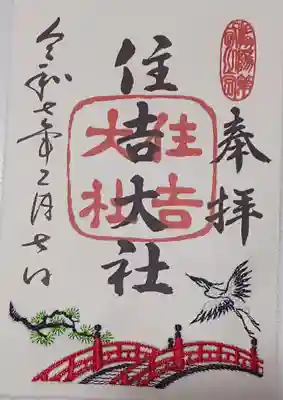 奉拝
住吉大社
住吉
大社
令和七年二月七日